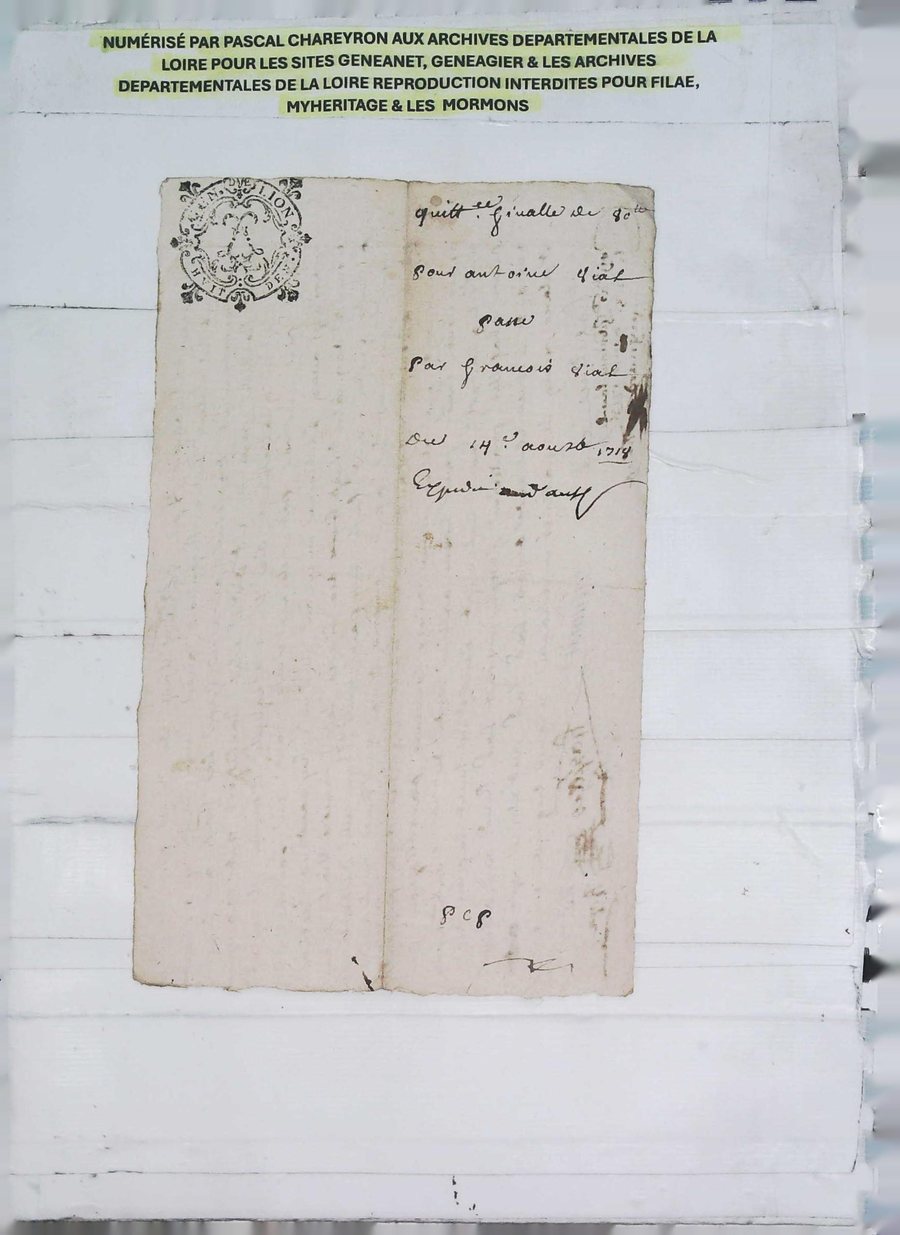 NUMÉRISÉ PAR PASCAL CHAREYRON AUX ARCHIVES DEPARTEMENTALES DE LA
LOIRE POUR LES SITES GENEANET, GENEAGIER & LES ARCHIVES
DEPARTEMENTALES DE LA LOIRE REPRODUCTION INTERDITES POUR FILAE,
MYHERITAGE & LES MORMONS
GEN. DE LION
HVIT DEN.
quitt.ce finalle de 80tt
pour antoine Vial
passé
par francois Vial
du 14.e aoust 1718
Expédié aud ant
p c p